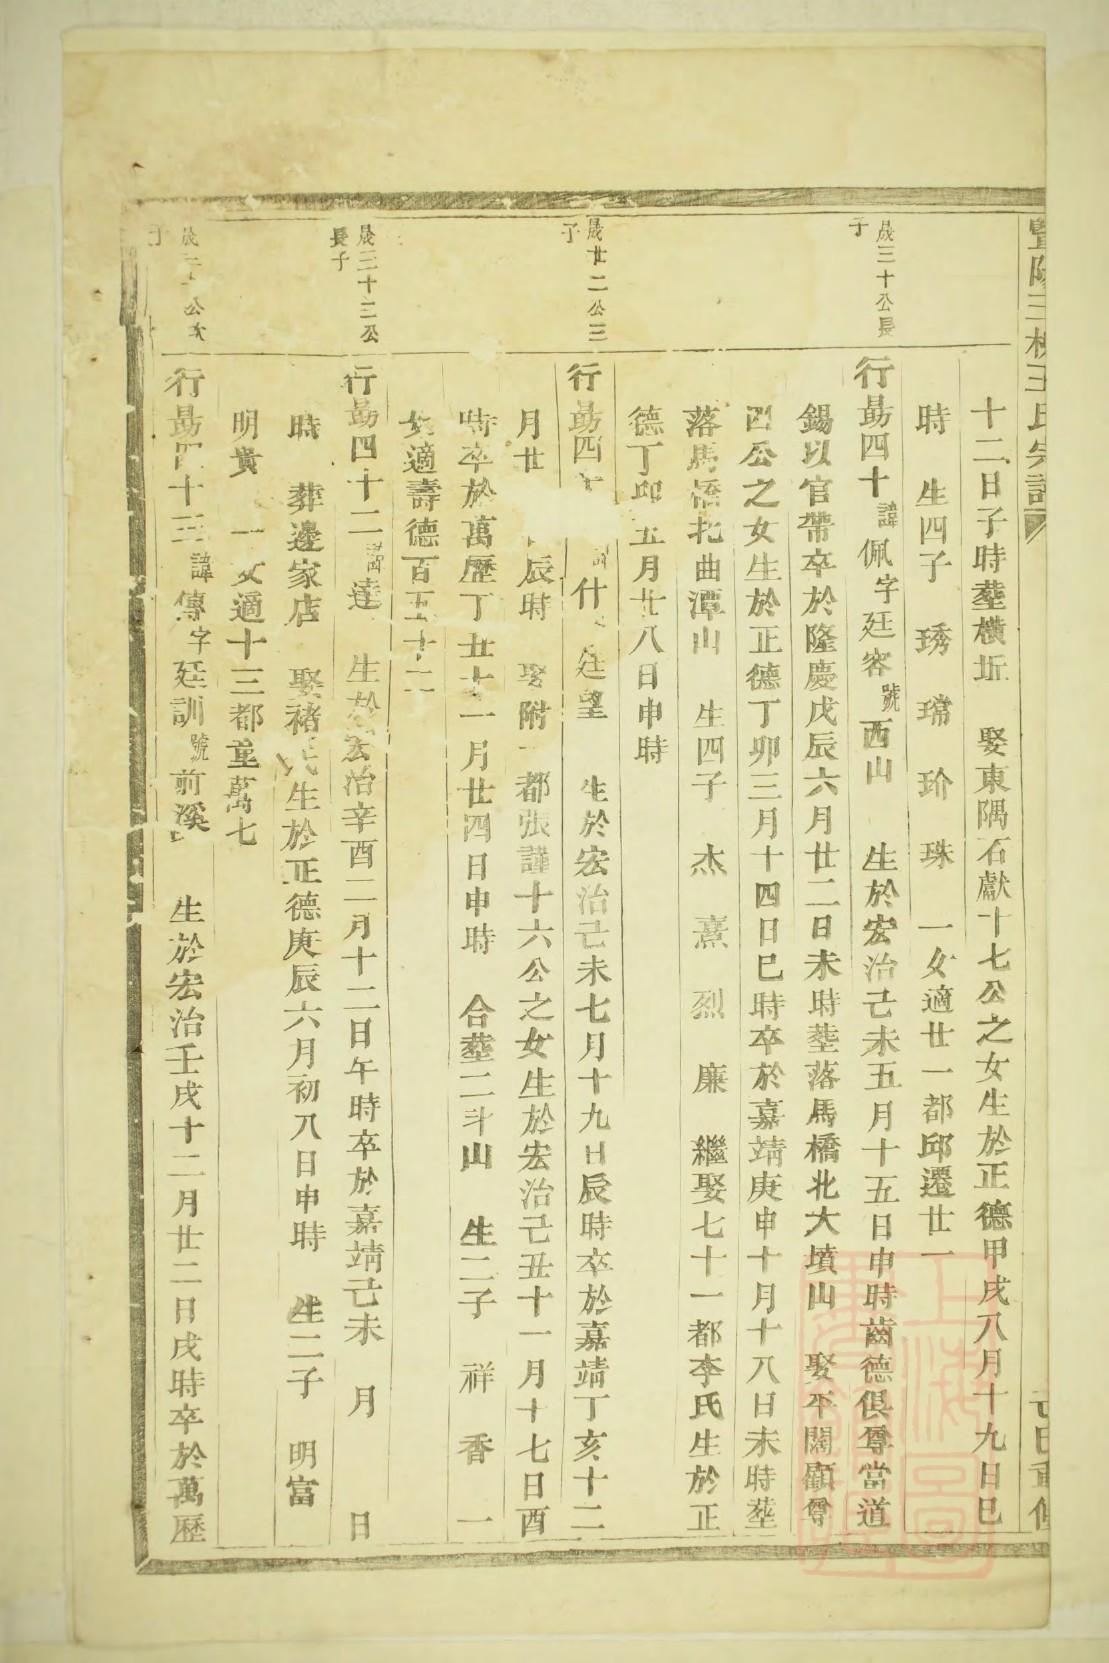 暨陽三橋王氏宗譜
己巳重修
十二日子時塟橫坵 娶東隅石獻十七公之女生於正德甲戌八月十九日巳
時 生四子 琇 瑺 玠 珠 一女適廿一都邱遷廿一
晟三十公長
子
行勗四十諱佩字廷容號西山 生於宏治己未五月十五日申時齒德俱尊當道
錫以官帶卒於隆慶戊辰六月廿二日未時塟落馬橋北大墳山 娶平闊顧尊
四公之女生於正德丁卯三月十四日巳時卒於嘉靖庚申十月十八日未時塟
落馬橋北曲潭山 生四子 杰 熹 烈 廉 繼娶七十一都李氏生於正
德丁卯五月廿八日申時
晟廿二公三
子
行勗四十 什 廷望 生於宏治己未七月十九日辰時卒於嘉靖丁亥十二
月廿 辰時 娶附一都張謹十六公之女生於宏治己丑十一月十七日酉
時卒於萬歷丁丑十一月廿四日申時 合塟二斗山 生二子 祥 香 一
女適壽德百五十二
晟三十三公
長子
行勗四十二諱達 生於宏治辛酉二月十二日午時卒於嘉靖己未 月 日
時 葬邊家店 娶褚氏生於正德庚辰六月初八日申時 生二子 明富
明貴 一女適十三都童萬七
晟三十 公次
子
行勗四十三諱傳字廷訓號前溪 生於宏治壬戌十二月廿二日戌時卒於萬歷
上海圖書館藏